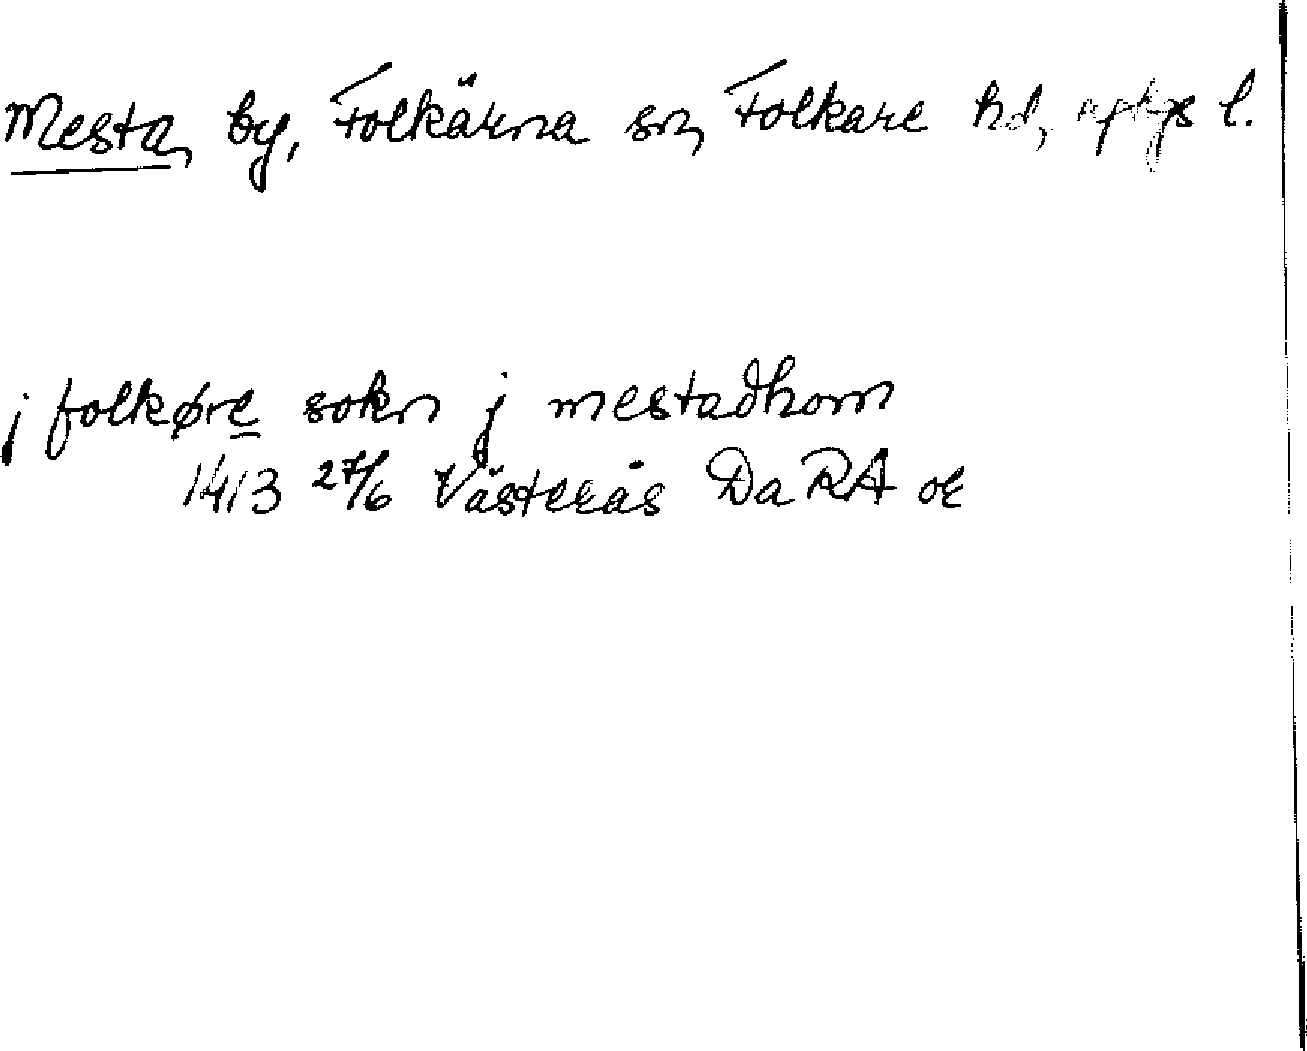 Mesta, by, Folkärna sn, Folkare hd, l.
j folkøre sokn j mestadhom
1413 27/6 Västerås Da RA or